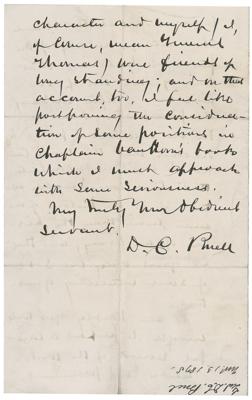 character and myself (I,
of course, mean General
Thomas) were friends of
long standing; and on that
account, too, I feel like
postponing the considera-
tion of some positions in
Chaplain Van Horne's book
which I must approach
with some seriousness.
Very Truly Your Obedient
Servant.
D. C. Buell